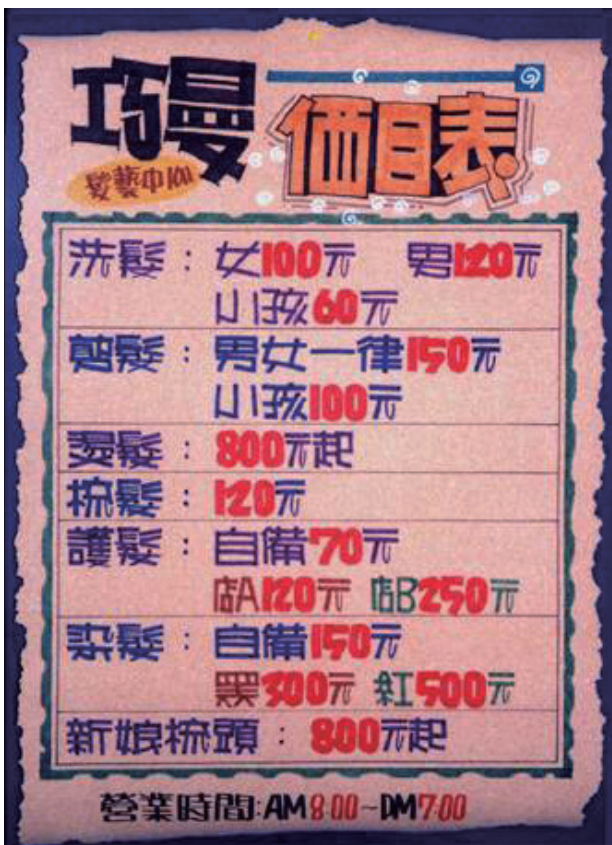 巧曼
髮藝中心
価目表
洗髮：女100元 男120元
小孩60元
剪髮：男女一律150元
小孩100元
燙髮：800元起
梳髮：120元
護髮：自備70元
店A120元 店B250元
染髮：自備150元
黑300元 紅500元
新娘梳頭：800元起
營業時間:AM8:00~PM7:00